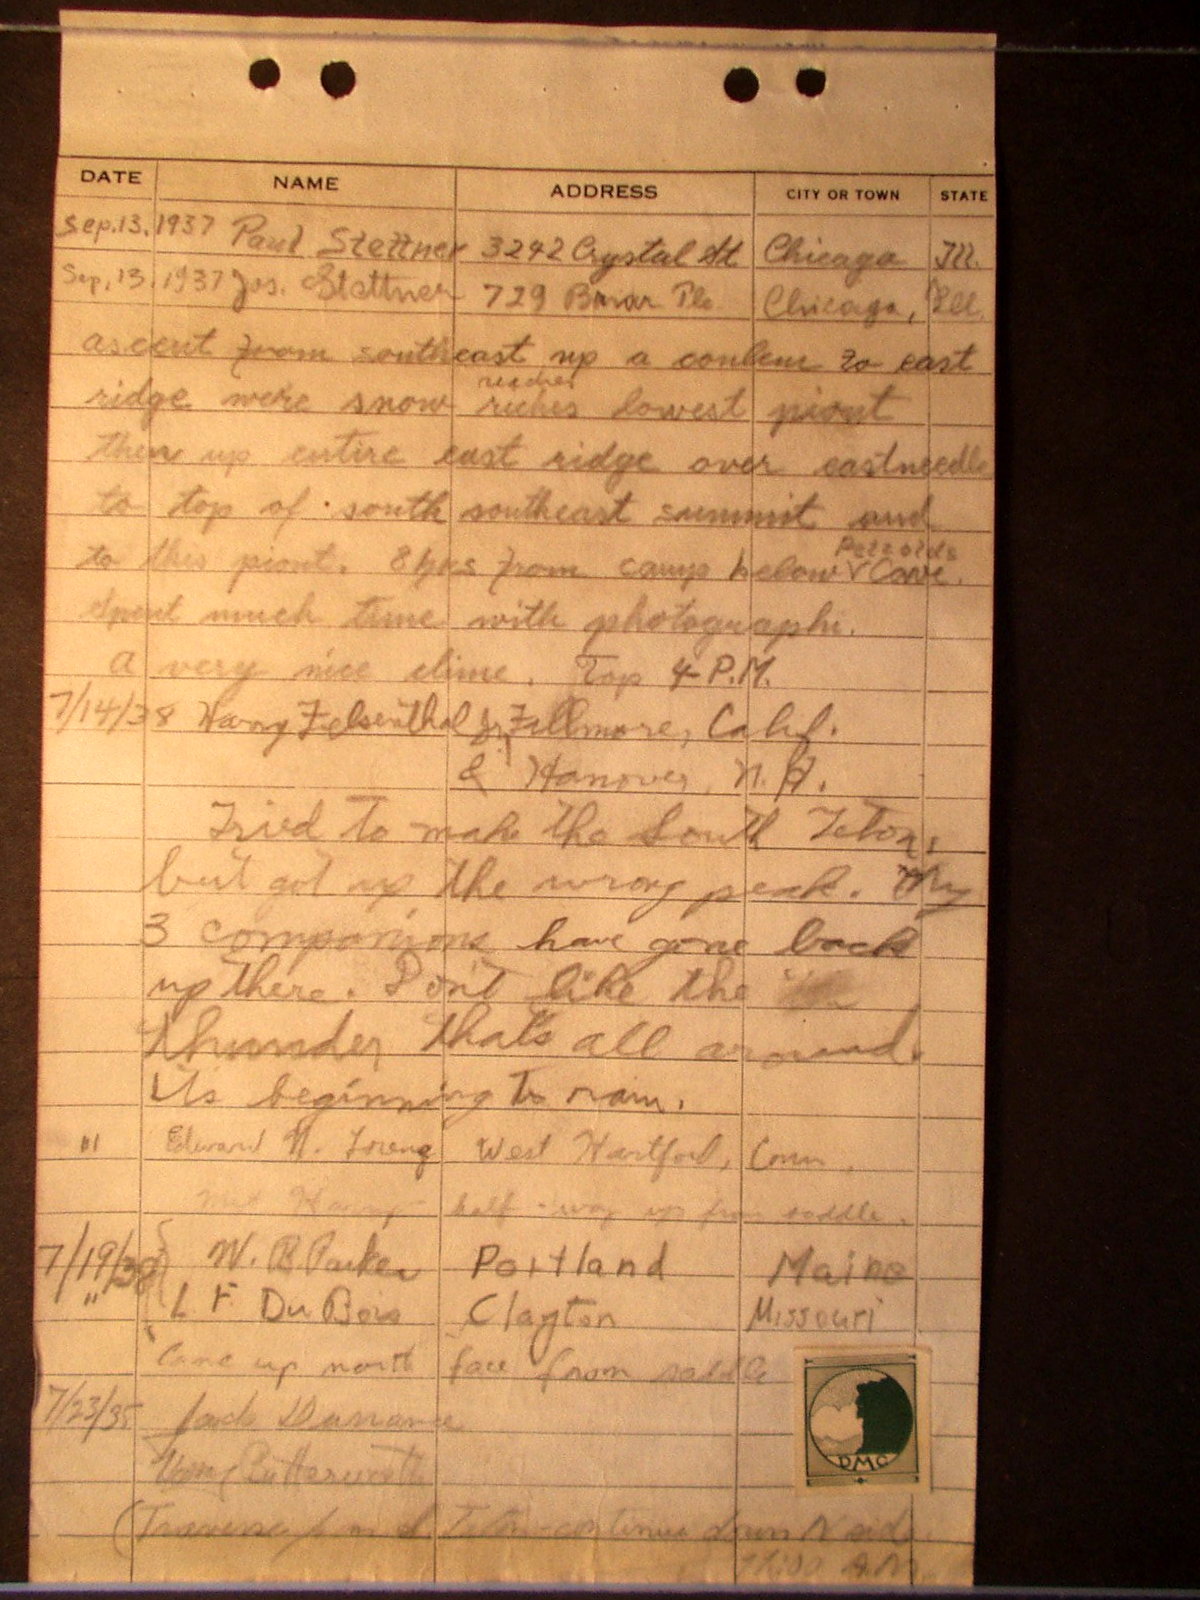 DATE NAME ADDRESS CITY OR TOWN STATE
Sep.13.1937 Paul Stettner 3242 Crystal St Chicago Ill.
Sep.13.1937 Jos. Stettner 729 Briar Plc. Chicago, Ill.
ascent from southeast up a couleur to east
reaches
ridge were snow riches lowest piont
then up entire east ridge over eastneedle
to top of south southeast summit and
Petzolds
to this piont. 8 hrs from camp below Cave.
Spent much time with photographi.
A very nice clime. Top 4 P.M.
7/14/38 Harry Felsenthal Jr. Fillmore, Calif.
& Hanover, N.H.
Tried to make the South Teton,
but got up the wrong peak. My
3 companions have gone back
up there. Don't like the
thunder that's all around.
It's beginning to rain.
" Edward N. West Hartford, Conn.
Met Harry half-way up from saddle.
7/19/38 W. B. Parker Portland Maine
" L F Du Bois Clayton Missouri
Came up north face from saddle
7/23/35 Jack Durrance
Henry Butterworth
DMC
(Traverse from S. Teton-continue down N side
A.M.